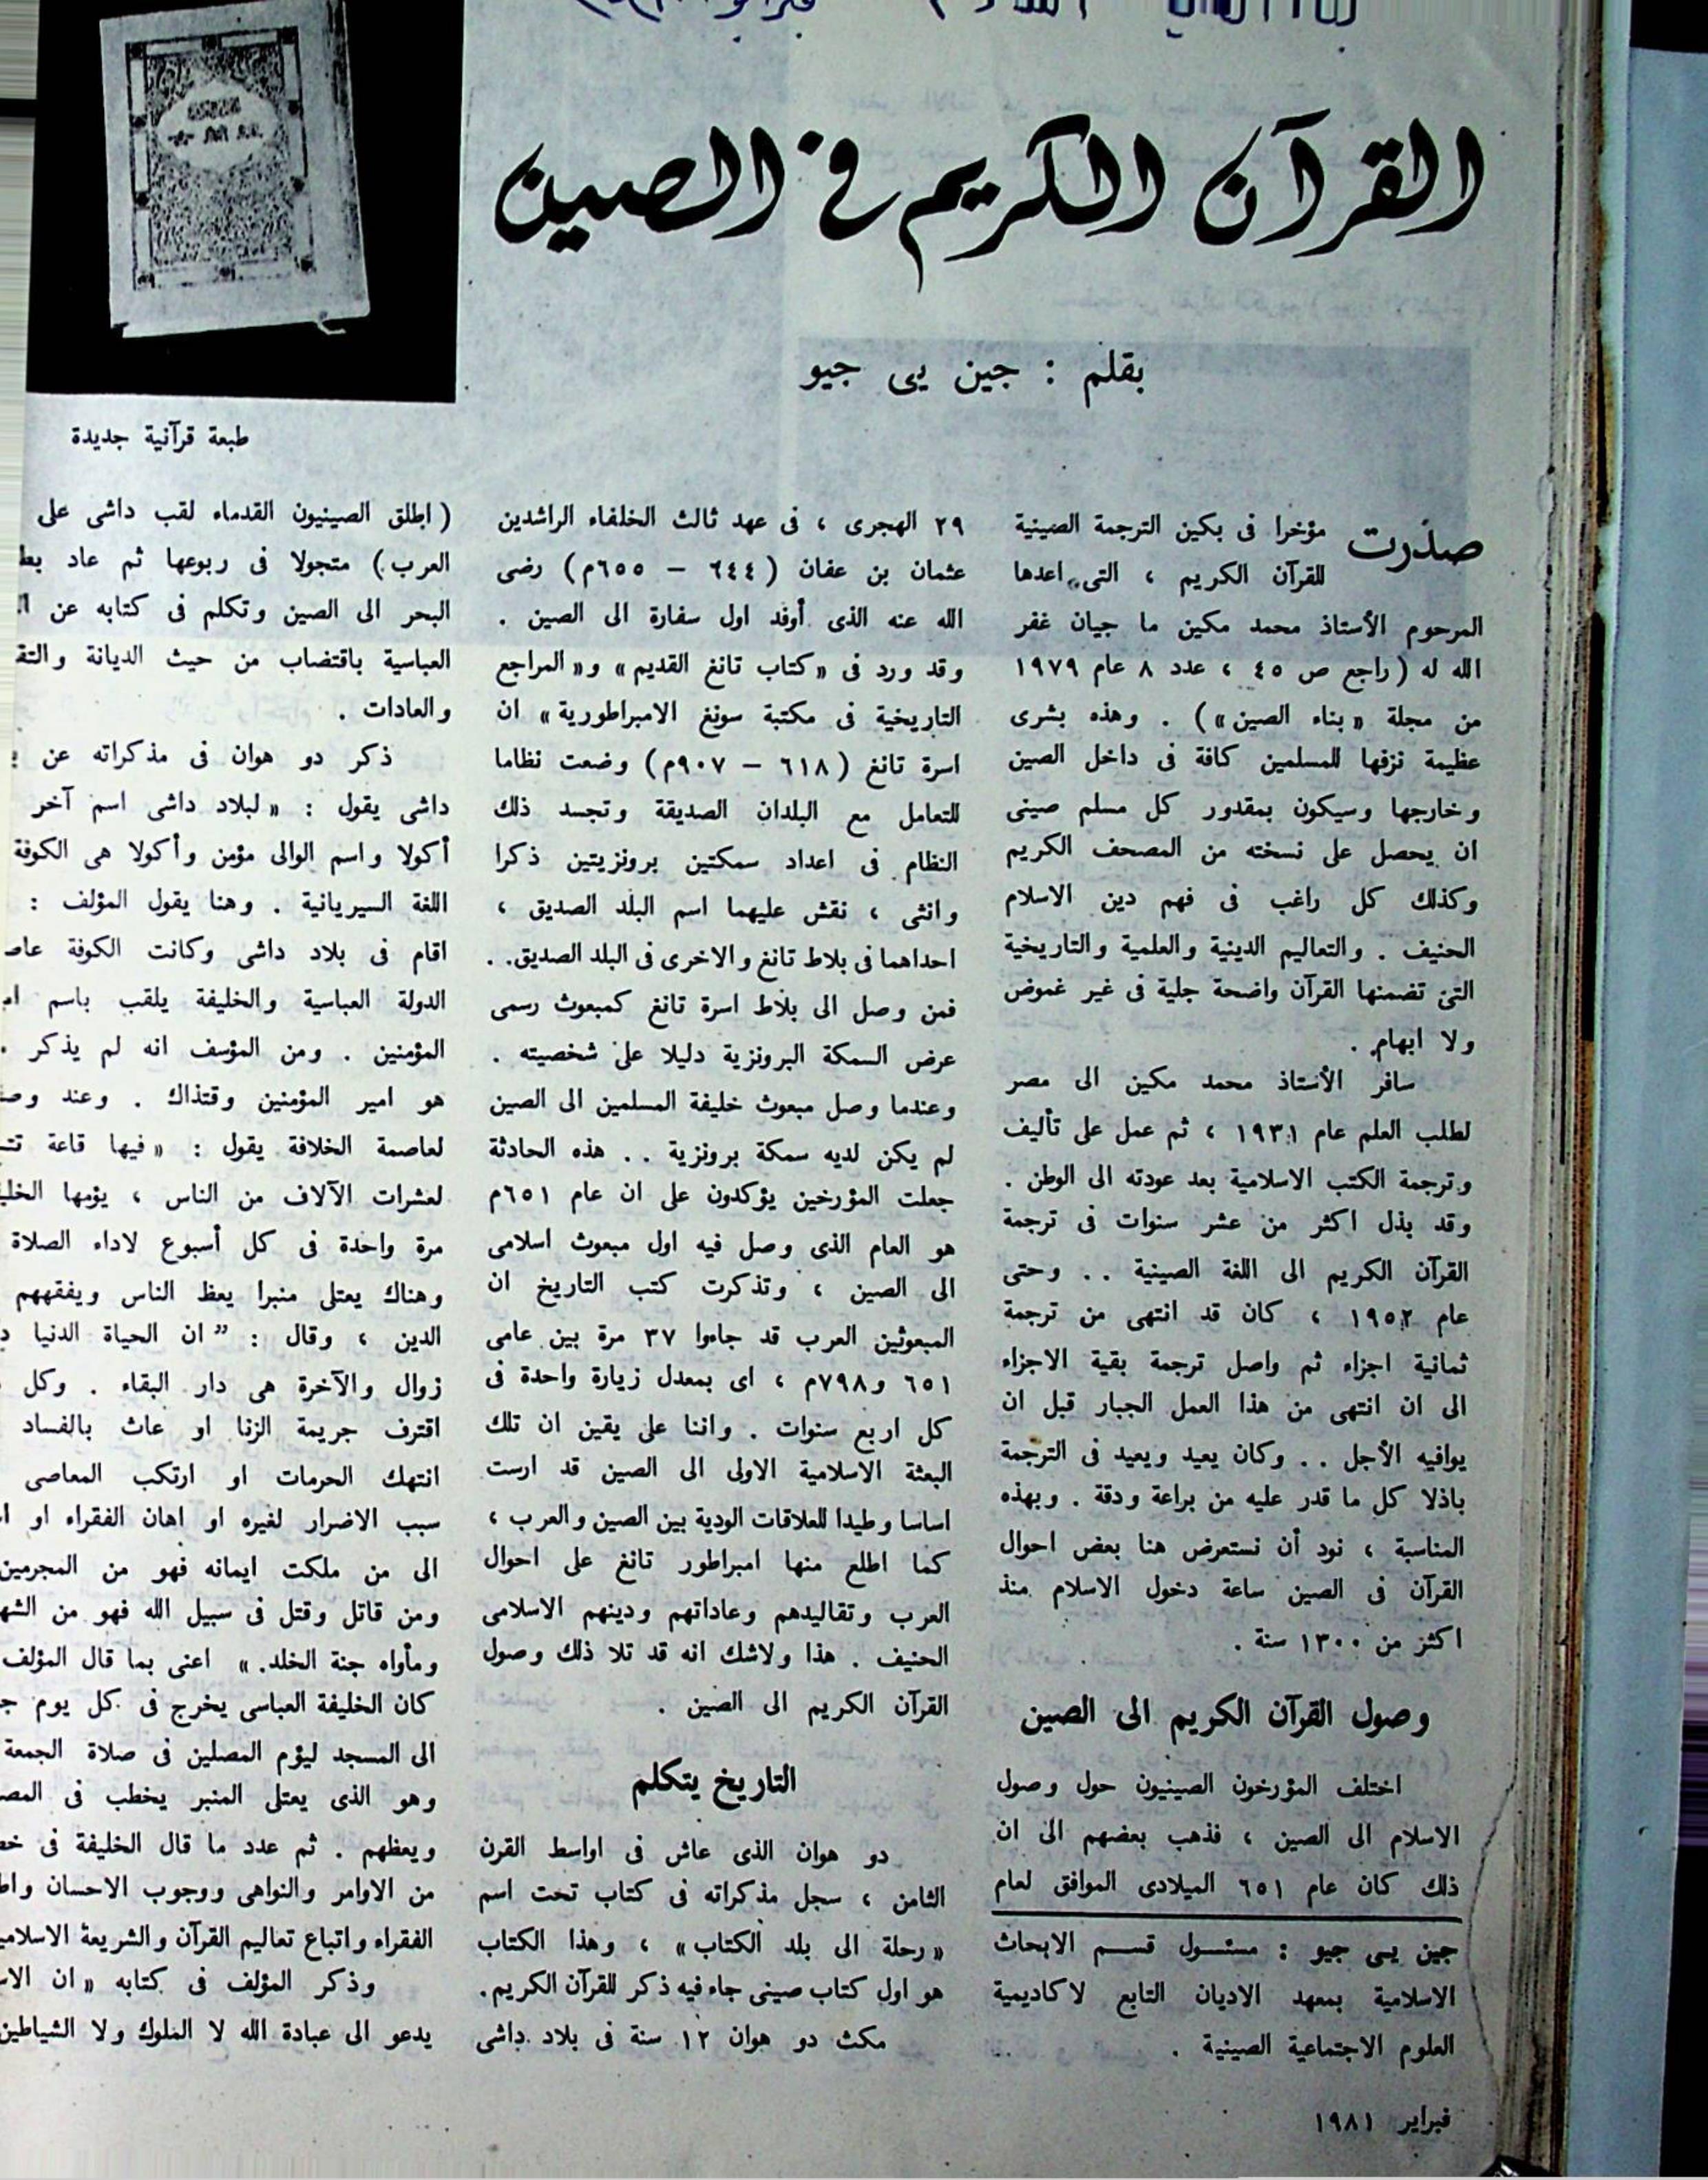 القرآن الكريم فى الصين
بقلم : جين يى جيو
طبعة قرآنية جديدة
صدرت مؤخرا فى بكين الترجمة الصينية
للقرآن الكريم ، التى اعدها
المرحوم الأستاذ محمد مكين ما جيان غفر
الله له (راجع ص ٤٥ ، عدد ٨ عام ١٩٧٩
من مجلة «بناء الصين») . وهذه بشرى
عظيمة نزفها للمسلمين كافة فى داخل الصين
وخارجها وسيكون بمقدور كل مسلم صينى
ان يحصل على نسخته من المصحف الكريم
وكذلك كل راغب فى فهم دين الاسلام
الحنيف . والتعاليم الدينية والعلمية والتاريخية
التى تضمنها القرآن واضحة جلية فى غير غموض
ولا ابهام .
سافر الأستاذ محمد مكين الى مصر
لطلب العلم عام ١٩٣١ ، ثم عمل على تأليف
وترجمة الكتب الاسلامية بعد عودته الى الوطن .
وقد بذل اكثر من عشر سنوات فى ترجمة
القرآن الكريم الى اللغة الصينية . . وحتى
عام ١٩٥٢ ، كان قد انتهى من ترجمة
ثمانية اجزاء ثم واصل ترجمة بقية الاجزاء
الى ان انتهى من هذا العمل الجبار قبل ان
يوافيه الأجل . . وكان يعيد ويعيد فى الترجمة
باذلا كل ما قدر عليه من براعة ودقة . وبهذه
المناسبة ، نود أن نستعرض هنا بعض احوال
القرآن فى الصين ساعة دخول الاسلام منذ
اكثر من ١٣٠٠ سنة .
وصول القرآن الكريم الى الصين
اختلف المؤرخون الصينيون حول وصول
الاسلام الى الصين ، فذهب بعضهم الى ان
ذلك كان عام ٦٥١ الميلادى الموافق لعام
جين يى جيو : مسئول قسم الابحاث
الاسلامية بمعهد الاديان التابع لاكاديمية
العلوم الاجتماعية الصينية .
٢٩ الهجرى ، فى عهد ثالث الخلفاء الراشدين
عثمان بن عفان (٦٤٤ – ٦٥٥م) رضى
الله عنه الذى أوفد اول سفارة الى الصين .
وقد ورد فى «كتاب تانغ القديم» و«المراجع
التاريخية فى مكتبة سونغ الامبراطورية» ان
اسرة تانغ (٦١٨ – ٩٠٧م) وضعت نظاما
للتعامل مع البلدان الصديقة وتجسد ذلك
النظام فى اعداد سمكتين برونزيتين ذكرا
وانثى ، نقش عليهما اسم البلد الصديق ،
احداهما فى بلاط تانغ والاخرى فى البلد الصديق. .
فمن وصل الى بلاط اسرة تانغ كمبعوث رسمى
عرض السمكة البرونزية دليلا على شخصيته .
وعندما وصل مبعوث خليفة المسلمين الى الصين
لم يكن لديه سمكة برونزية . . هذه الحادثة
جعلت المؤرخين يؤكدون على ان عام ٦٥١م
هو العام الذى وصل فيه اول مبعوث اسلامى
الى الصين ، وتذكرت كتب التاريخ ان
المبعوثين العرب قد جاءوا ٣٧ مرة بين عامى
٦٥١ و٧٩٨م ، اى بمعدل زيارة واحدة فى
كل اربع سنوات . واننا على يقين ان تلك
البعثة الاسلامية الاولى الى الصين قد ارست
اساسا وطيدا للعلاقات الودية بين الصين والعرب ،
كما اطلع منها امبراطور تانغ على احوال
العرب وتقاليدهم وعاداتهم ودينهم الاسلامى
الحنيف . هذا ولاشك انه قد تلا ذلك وصول
القرآن الكريم الى الصين .
التاريخ يتكلم
دو هوان الذى عاش فى اواسط القرن
الثامن ، سجل مذكراته فى كتاب تحت اسم
«رحلة الى بلد الكتاب» ، وهذا الكتاب
هو اول كتاب صينى جاء فيه ذكر للقرآن الكريم.
مكث دو هوان ١٢ سنة فى بلاد داشى
(اطلق الصينيون القدماء لقب داشى على
العرب) متجولا فى ربوعها ثم عاد
البحر الى الصين وتكلم فى كتابه عن
العباسية باقتضاب من حيث الديانة
والعادات .
ذكر دو هوان فى مذكراته عن
داشى يقول : «لبلاد داشى اسم آخر
أكولا واسم الوالى مؤمن وأكولا هى الكوفة
اللغة السيريانية . وهنا يقول المؤلف :
اقام فى بلاد داشى وكانت الكوفة
الدولة العباسية والخليفة يلقب باسم
المؤمنين . ومن المؤسف انه لم يذكر
هو امير المؤمنين وقتذاك . وعند
لعاصمة الخلافة يقول : «فيها قاعة
لعشرات الآلاف من الناس ، يؤمها
مرة واحدة فى كل أسبوع لاداء الصلاة
وهناك يعتلى منبرا يعظ الناس ويفقههم
الدين ، وقال : ”ان الحياة الدنيا
زوال والآخرة هى دار البقاء . وكل
اقترف جريمة الزنا او عاث بالفساد
انتهك الحرمات او ارتكب المعاصى
سبب الاضرار لغيره او اهان الفقراء او
الى من ملكت ايمانه فهو من المجرمين
ومن قاتل وقتل فى سبيل الله فهو من
ومأواه جنة الخلد.» اعنى بما قال المؤلف
كان الخليفة العباسى يخرج فى كل يوم
الى المسجد ليؤم المصلين فى صلاة الجمعة
وهو الذى يعتلى المنبر يخطب فى
ويعظهم . ثم عدد ما قال الخليفة فى
من الاوامر والنواهى ووجوب الاحسان
الفقراء واتباع تعاليم القرآن والشريعة
وذكر المؤلف فى كتابه «ان
يدعو الى عبادة الله لا الملوك ولا الشياطين
فبراير ١٩٨١